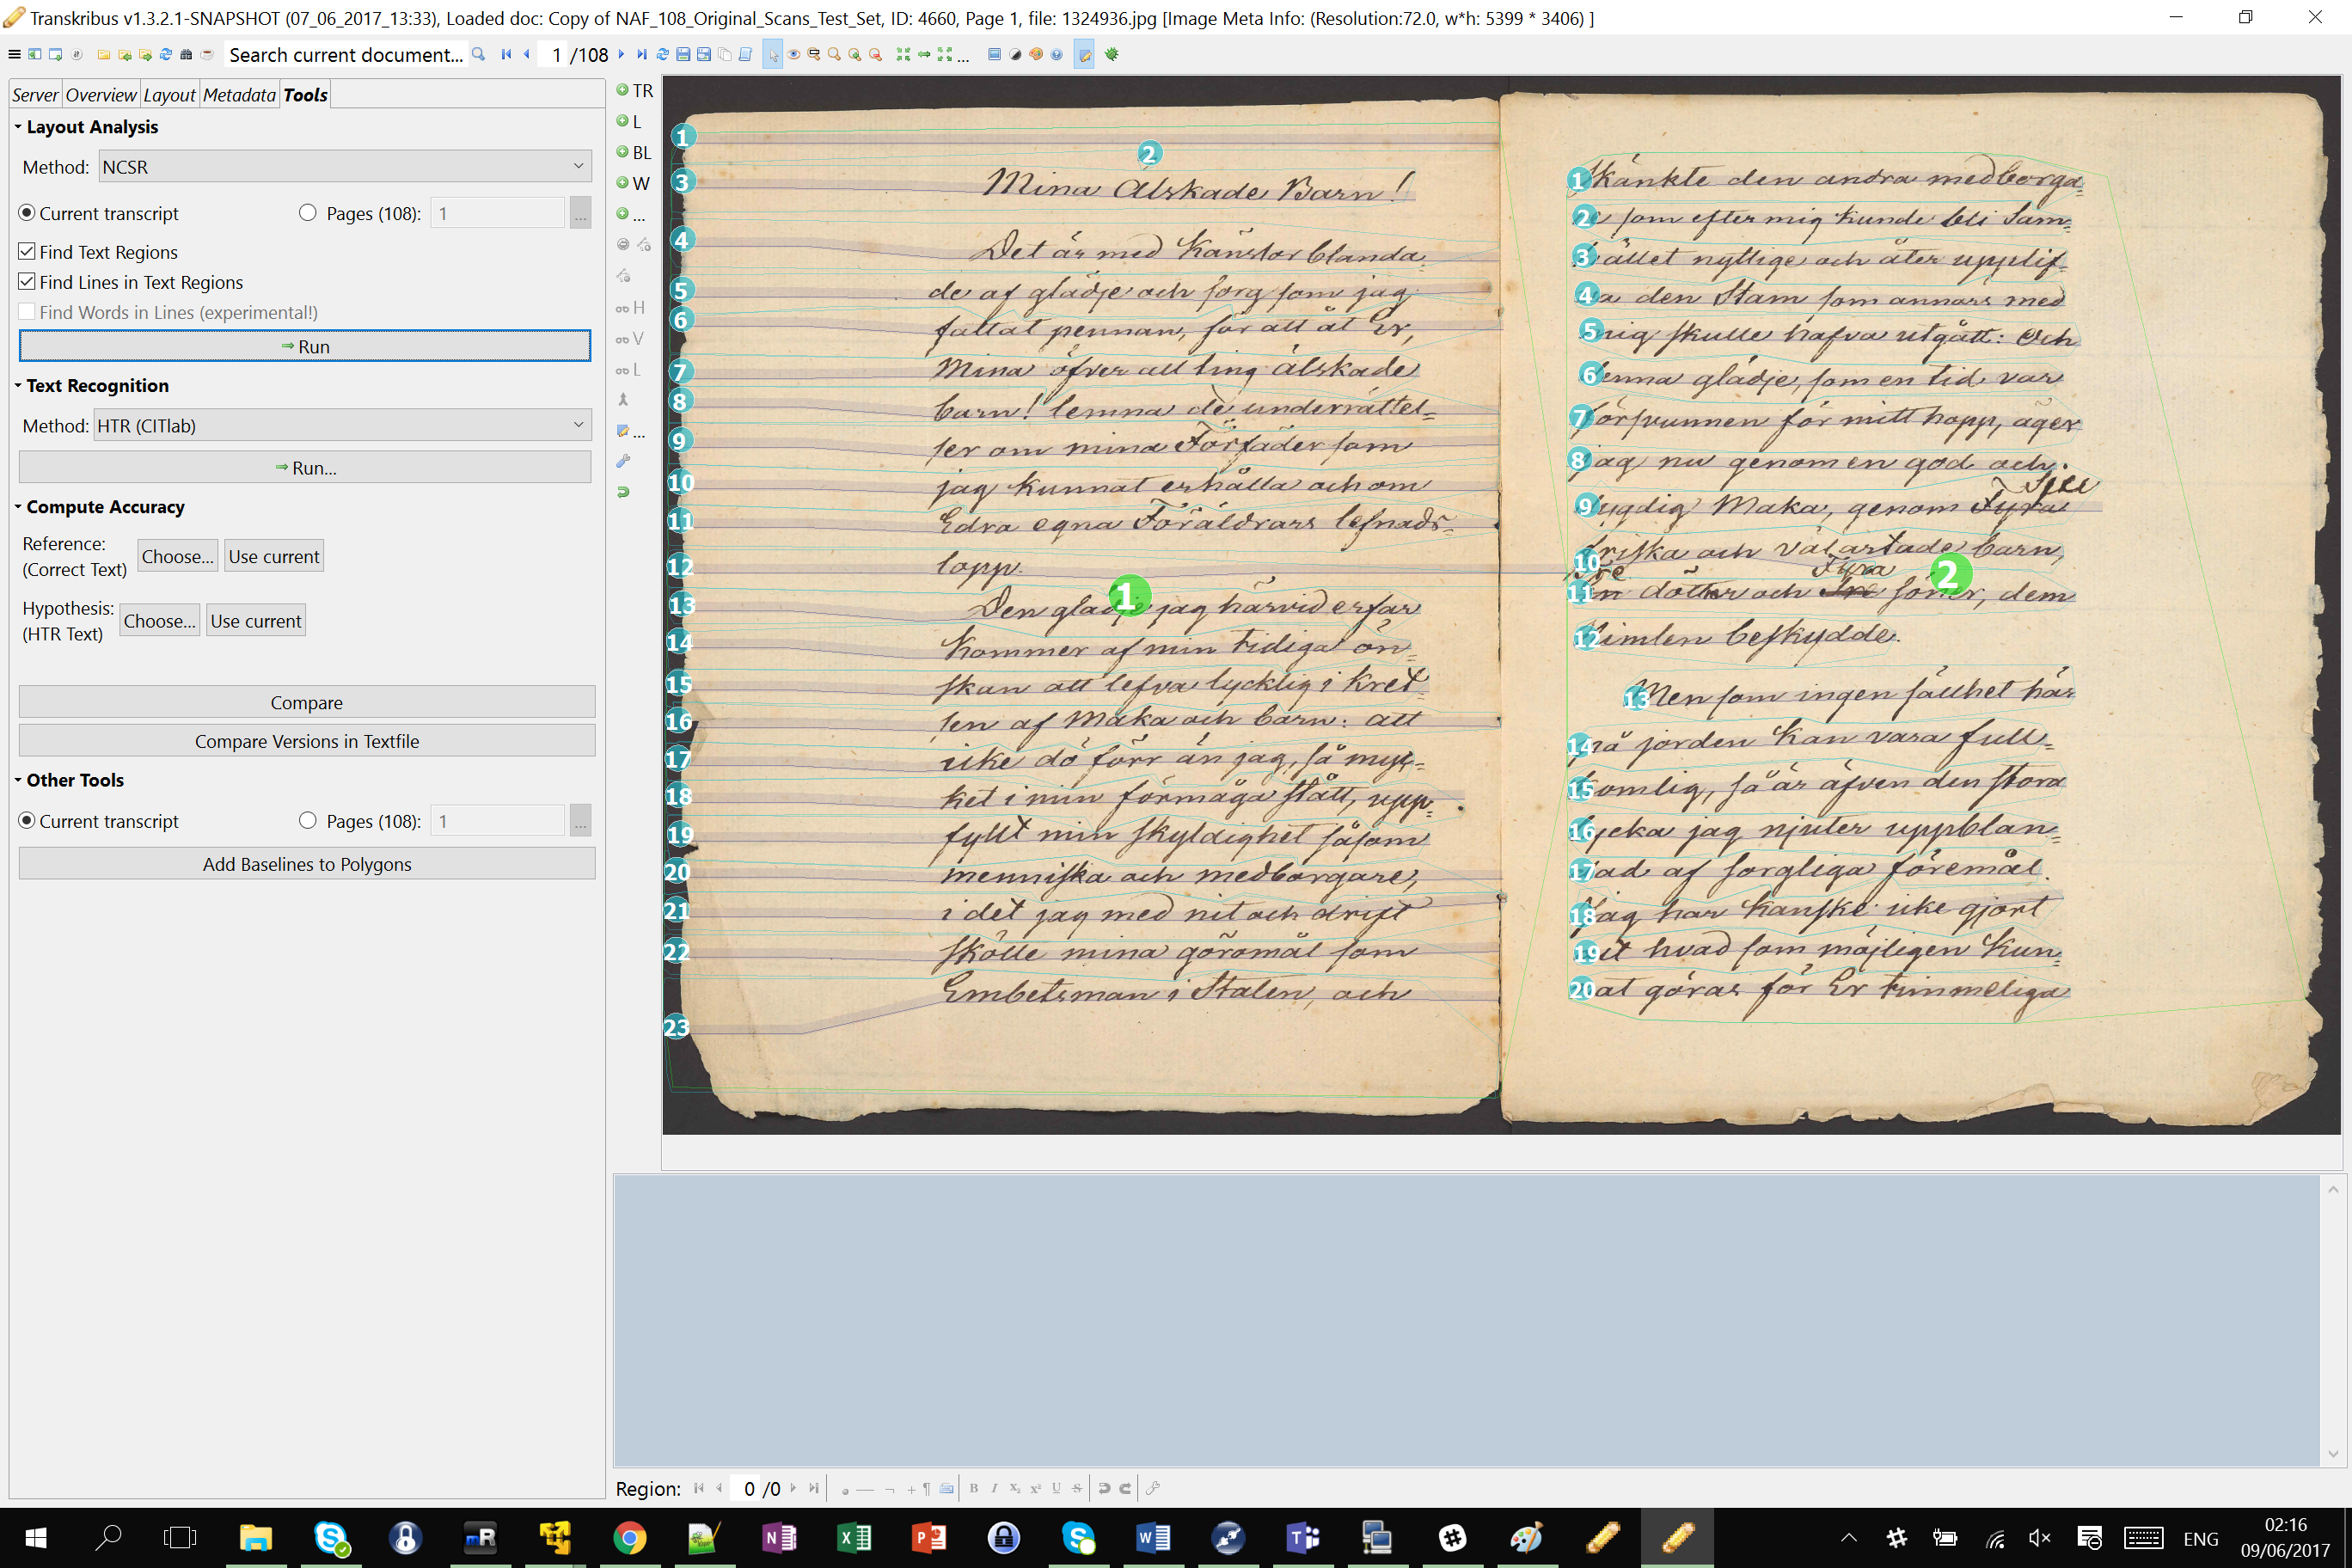 Transkribus v1.3.2.1-SNAPSHOT (07_06_2017_13:33), Loaded doc: Copy of NAF_108_Original_Scans_Test_Set, ID: 4660, Page 1, file: 1324936.jpg [Image Meta Info: (Resolution:72.0, w*h: 5399 * 3406) ]
Search current document... 1 /108
Server Overview Layout Metadata Tools
Layout Analysis
Method: NCSR
Current transcript Pages (108): 1 ...
Find Text Regions
Find Lines in Text Regions
Find Words in Lines (experimental!)
Run
Text Recognition
Method: HTR (CITlab)
Run...
Compute Accuracy
Reference:
(Correct Text)
Choose... Use current
Hypothesis:
(HTR Text)
Choose... Use current
Compare
Compare Versions in Textfile
Other Tools
Current transcript Pages (108): 1 ...
Add Baselines to Polygons
TR
L
BL
W
...
H
V
L
...
Mina Älskade Barn!
Det är med Känslor blanda
de af glädje och sorg som jag
fattat pennan, för att åt Er,
Mina öfver allting älskade
barn! lemna de underrättel=
ser om mina Förfäder som
jag kunnat erhålla och om
Edra egna Föräldrars lefnads-
lopp.
Den glädje jag härvid erfar
Kommer af min tidiga ön=
skan att lefva lycklig i Kret
sen af Maka och barn: att
icke dö förr än jag, så myc=
ket i min förmåga stått, upp=
fyllt min skyldighet såsom
menniska och medborgare,
i det jag med nit och drift
skötte mina göromål som
Embetsman i Staten, och
skänkte den andra medborga
re som efter mig kunde bli Sam=
hället nyttige och åter upplif=
va den Stam som annars med
mig skulle hafva utgått: Och
denna glädje, som en tid var
försvunnen för mitt hopp, äger
jag nu genom en god och
dygdig Maka, genom Fyra
friska och välartade barn,
Tre Fyra
En döttrar och Tre söner, dem
Himlen beskydde.
Men som ingen sällhet här
på jorden Kan vara full=
komlig, så är äfven den stora
lycka jag njuter uppblan=
dad af sorgliga föremål.
Jag har Kanske icke gjort
allt hvad som möjligen Kun=
nat göras för Er timmeliga
Region: 0 /0
ENG
02:16
09/06/2017